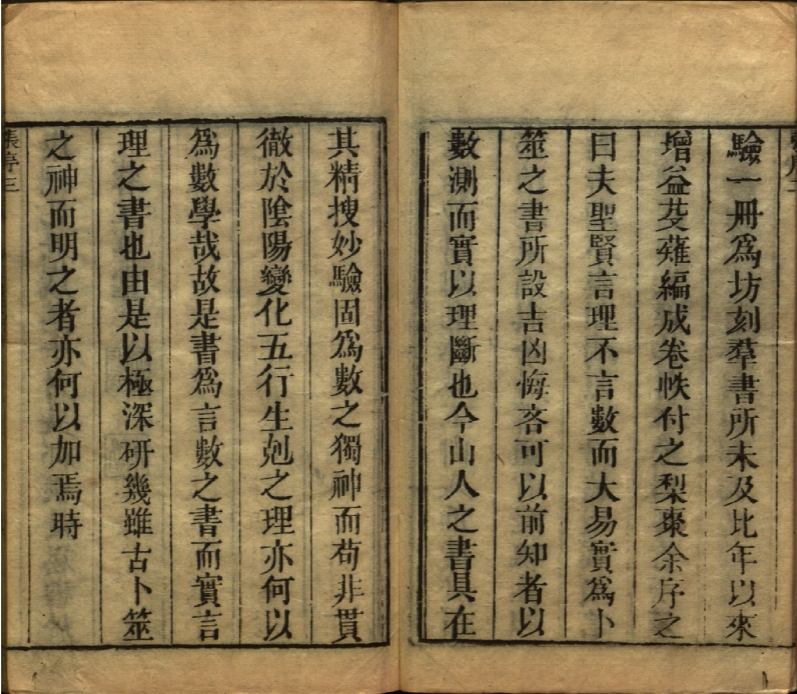 驗一冊爲坊刻羣書所未及比年以來
增益芟薙編成卷帙付之梨棗余序之
曰夫聖賢言理不言數而大易實爲卜
筮之書所設吉凶悔吝可以前知者以
數測而實以理斷也今山人之書具在
其精搜妙驗固爲數之獨神而苟非貫
徹於陰陽變化五行生剋之理亦何以
爲數學哉故是書爲言數之書而實言
理之書也由是以極深研幾雖古卜筮
之神而明之者亦何以加焉時
序三